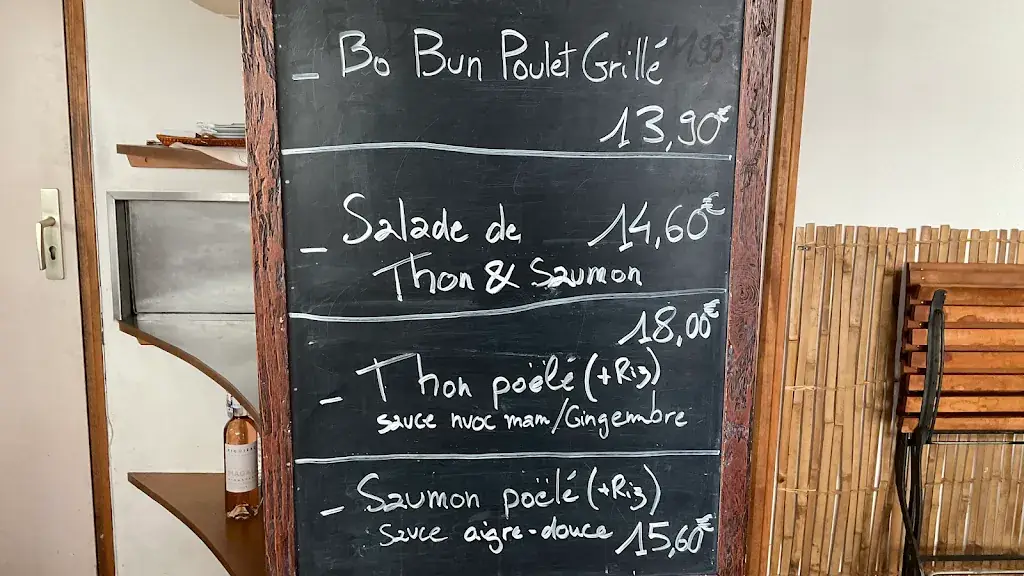 - Bo Bun Poulet Grillé
13,90€
- Salade de 14,60€
Thon & Saumon
18,00€
- Thon poëlé (+Riz)
sauce nuoc mam/Gingembre
- Saumon poëlé (+Riz)
sauce aigre-douce 15,60€